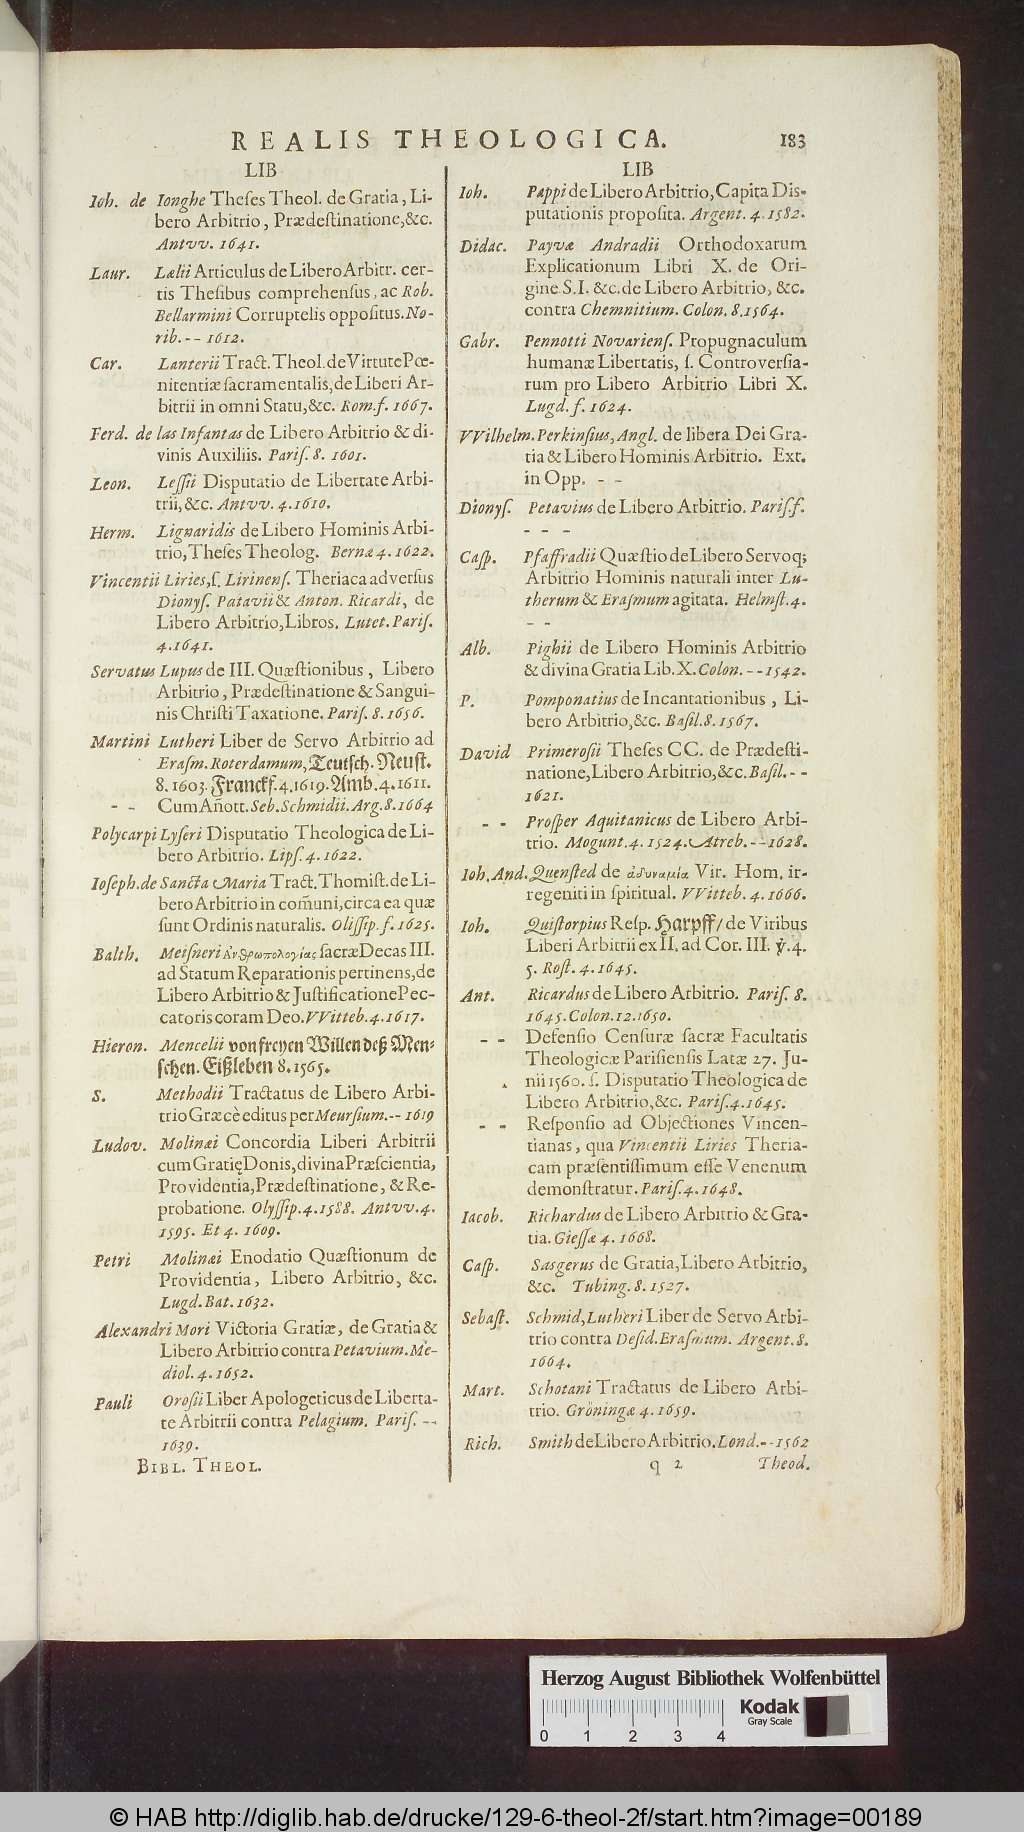 REALIS THEOLOGICA. 183
LIB
Ioh. de Ionghe Theſes Theol. de Gratia, Li-
bero Arbitrio, Prædeſtinatione, &c.
Antvv. 1641.
Laur. Lælii Articulus de Libero Arbitr. cer-
tis Theſibus comprehenſus, ac Rob.
Bellarmini Corruptelis oppoſitus. No-
rib. -- 1612.
Car. Lanterii Tract. Theol. de Virtute Pœ-
nitentiæ ſacramentalis, de Liberi Ar-
bitrii in omni Statu, &c. Rom. f. 1667.
Ferd. de las Infantas de Libero Arbitrio & di-
vinis Auxiliis. Pariſ. 8. 1601.
Leon. Leſſii Disputatio de Libertate Arbi-
trii, &c. Antvv. 4. 1610.
Herm. Lignaridis de Libero Hominis Arbi-
trio, Theſes Theolog. Bernæ 4. 1622.
Vincentii Liries, ſ. Lirinenſ. Theriaca adverſus
Dionyſ. Patavii & Anton. Ricardi, de
Libero Arbitrio, Libros. Lutet. Pariſ.
4. 1641.
Servatus Lupus de III. Quæſtionibus, Libero
Arbitrio, Prædeſtinatione & Sangui-
nis Chriſti Taxatione. Pariſ. 8. 1656.
Martini Lutheri Liber de Servo Arbitrio ad
Eraſm. Roterdamum, Teutſch. Neuſt.
8. 1603. Franckf. 4. 1619. Amb. 4. 1611.
- - Cum An̄ott. Seb. Schmidii. Arg. 8. 1664
Polycarpi Lyſeri Disputatio Theologica de Li-
bero Arbitrio. Lipſ. 4. 1622.
Ioſeph. de Sancta Maria Tract. Thomiſt. de Li-
bero Arbitrio in com̄uni, circa ea quæ
ſunt Ordinis naturalis. Oliſſip. f. 1625.
Balth. Meiſneri Ἀνθρωπολογίας ſacræ Decas III.
ad Statum Reparationis pertinens, de
Libero Arbitrio & Juſtificatione Pec-
catoris coram Deo. VVitteb. 4. 1617.
Hieron. Mencelii von freyen Willen deß Men-
ſchen. Eißleben 8. 1565.
S. Methodii Tractatus de Libero Arbi-
trio Græcè editus per Meurſium. -- 1619
Ludov. Molinæi Concordia Liberi Arbitrii
cum Gratię Donis, divina Præſcientia,
Providentia, Prædeſtinatione, & Re-
probatione. Olyſſip. 4. 1588. Antvv. 4.
1595. Et 4. 1609.
Petri Molinæi Enodatio Quæſtionum de
Providentia, Libero Arbitrio, &c.
Lugd. Bat. 1632.
Alexandri Mori Victoria Gratiæ, de Gratia &
Libero Arbitrio contra Petavium. Me-
diol. 4. 1652.
Pauli Oroſii Liber Apologeticus de Liberta-
te Arbitrii contra Pelagium. Pariſ. --
1639.
BIBL. THEOL.
LIB
Ioh. Pappi de Libero Arbitrio, Capita Dis-
putationis propoſita. Argent. 4. 1582.
Didac. Payvæ Andradii Orthodoxarum
Explicationum Libri X. de Ori-
gine S.I. &c. de Libero Arbitrio, &c.
contra Chemnitium. Colon. 8. 1564.
Gabr. Pennotti Novarienſ. Propugnaculum
humanæ Libertatis, ſ. Controverſia-
rum pro Libero Arbitrio Libri X.
Lugd. f. 1624.
VVilhelm. Perkinſius, Angl. de libera Dei Gra-
tia & Libero Hominis Arbitrio. Ext.
in Opp. - -
Dionyſ. Petavius de Libero Arbitrio. Pariſ. f.
- - -
Caſp. Pfaffradii Quæſtio de Libero Servoq;
Arbitrio Hominis naturali inter Lu-
therum & Eraſmum agitata. Helmſt. 4.
- -
Alb. Pighii de Libero Hominis Arbitrio
& divina Gratia Lib. X. Colon. -- 1542.
P. Pomponatius de Incantationibus, Li-
bero Arbitrio, &c. Baſil. 8. 1567.
David Primeroſii Theſes CC. de Prædeſti-
natione, Libero Arbitrio, &c. Baſil. - -
1621.
- - Proſper Aquitanicus de Libero Arbi-
trio. Mogunt. 4. 1524. Atreb. -- 1628.
Ioh. And. Quenſted de ἀδυναμία Vir. Hom. ir-
regeniti in ſpiritual. VVitteb. 4. 1666.
Ioh. Quiſtorpius Reſp. Harpff/ de Viribus
Liberi Arbitrii ex II. ad Cor. III. ꝟ. 4.
5. Roſt. 4. 1645.
Ant. Ricardus de Libero Arbitrio. Pariſ. 8.
1645. Colon. 12. 1650.
- - Defenſio Cenſuræ ſacræ Facultatis
Theologicæ Pariſienſis Latæ 27. Ju-
nii 1560. ſ. Disputatio Theologica de
Libero Arbitrio, &c. Pariſ. 4. 1645.
- - Reſponſio ad Objectiones Vincen-
tianas, qua Vincentii Liries Theria-
cam præſentiſſimum eſſe Venenum
demonſtratur. Pariſ. 4. 1648.
Iacob. Richardus de Libero Arbitrio & Gra-
tia. Gieſſæ 4. 1668.
Caſp. Sasgerus de Gratia, Libero Arbitrio,
&c. Tubing. 8. 1527.
Sebaſt. Schmid, Lutheri Liber de Servo Arbi-
trio contra Deſid. Eraſmum. Argent. 8.
1664.
Mart. Schotani Tractatus de Libero Arbi-
trio. Gröningæ 4. 1659.
Rich. Smith de Libero Arbitrio. Lond. -- 1562
q 2 Theod.
Herzog August Bibliothek Wolfenbüttel
Kodak
Gray Scale
0 1 2 3 4
© HAB http://diglib.hab.de/drucke/129-6-theol-2f/start.htm?image=00189